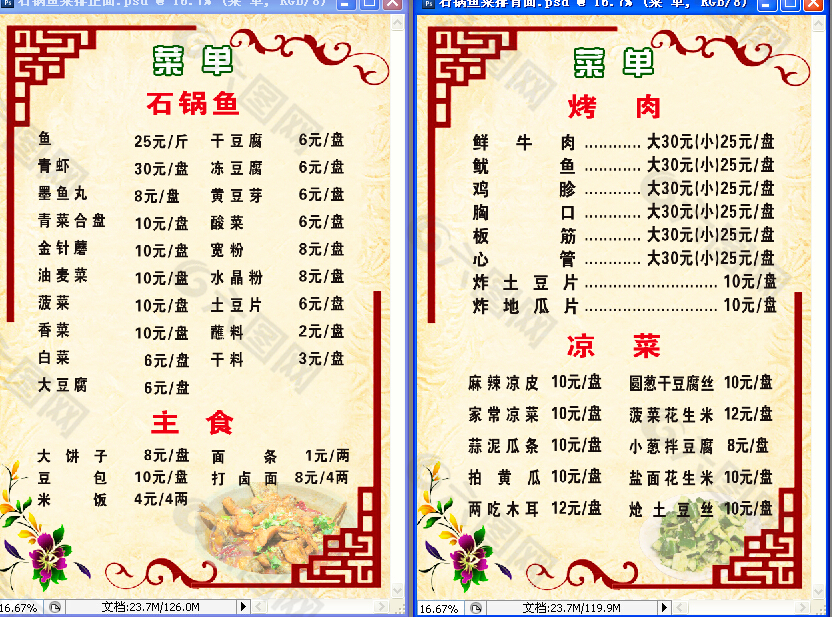 石锅鱼菜排正面.psd @ 16.7% (菜 单, RGB/8)
菜 单
石锅鱼
鱼 25元/斤 干豆腐 6元/盘
青虾 30元/盘 冻豆腐 6元/盘
墨鱼丸 8元/盘 黄豆芽 6元/盘
青菜合盘 10元/盘 酸菜 6元/盘
金针蘑 10元/盘 宽粉 8元/盘
油麦菜 10元/盘 水晶粉 8元/盘
菠菜 10元/盘 土豆片 6元/盘
香菜 10元/盘 蘸料 2元/盘
白菜 6元/盘 干料 3元/盘
大豆腐 6元/盘
主 食
大饼子 8元/盘 面条 1元/两
豆包 10元/盘 打卤面 8元/4两
米饭 4元/4两
16.67% 文档:23.7M/126.0M
石锅鱼菜排背面.psd @ 16.7% (菜 单, RGB/8)
菜 单
烤 肉
鲜牛肉 ............ 大30元(小)25元/盘
鱿鱼 ............ 大30元(小)25元/盘
鸡胗 ............ 大30元(小)25元/盘
胸口 ............ 大30元(小)25元/盘
板筋 ............ 大30元(小)25元/盘
心管 ............ 大30元(小)25元/盘
炸土豆片 ............................ 10元/盘
炸地瓜片 ............................ 10元/盘
凉 菜
麻辣凉皮 10元/盘 圆葱干豆腐丝 10元/盘
家常凉菜 10元/盘 菠菜花生米 12元/盘
蒜泥瓜条 10元/盘 小葱拌豆腐 8元/盘
拍黄瓜 10元/盘 盐面花生米 10元/盘
两吃木耳 12元/盘 炝土豆丝 10元/盘
16.67% 文档:23.7M/119.9M
六图网